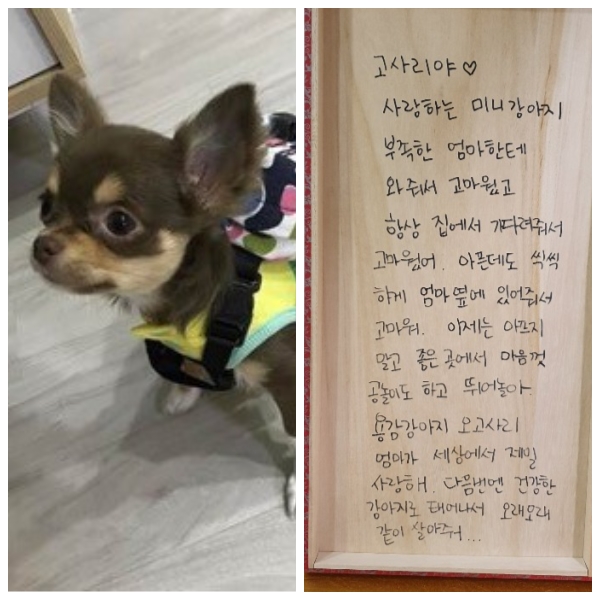 고사리야♡
사랑하는 미니강아지
부족한 엄마한테
와줘서 고마웠고
항상 집에서 기다려줘서
고마웠어. 아픈데도 씩씩
하게 엄마옆에 있어줘서
고마워. 이제는 아프지
말고 좋은곳에서 마음껏
공놀이도 하고 뛰어놀아.
용감강아지 오고사리
엄마가 세상에서 제일
사랑해. 다음번엔 건강한
강아지로 태어나서 오래오래
같이 살아줘...